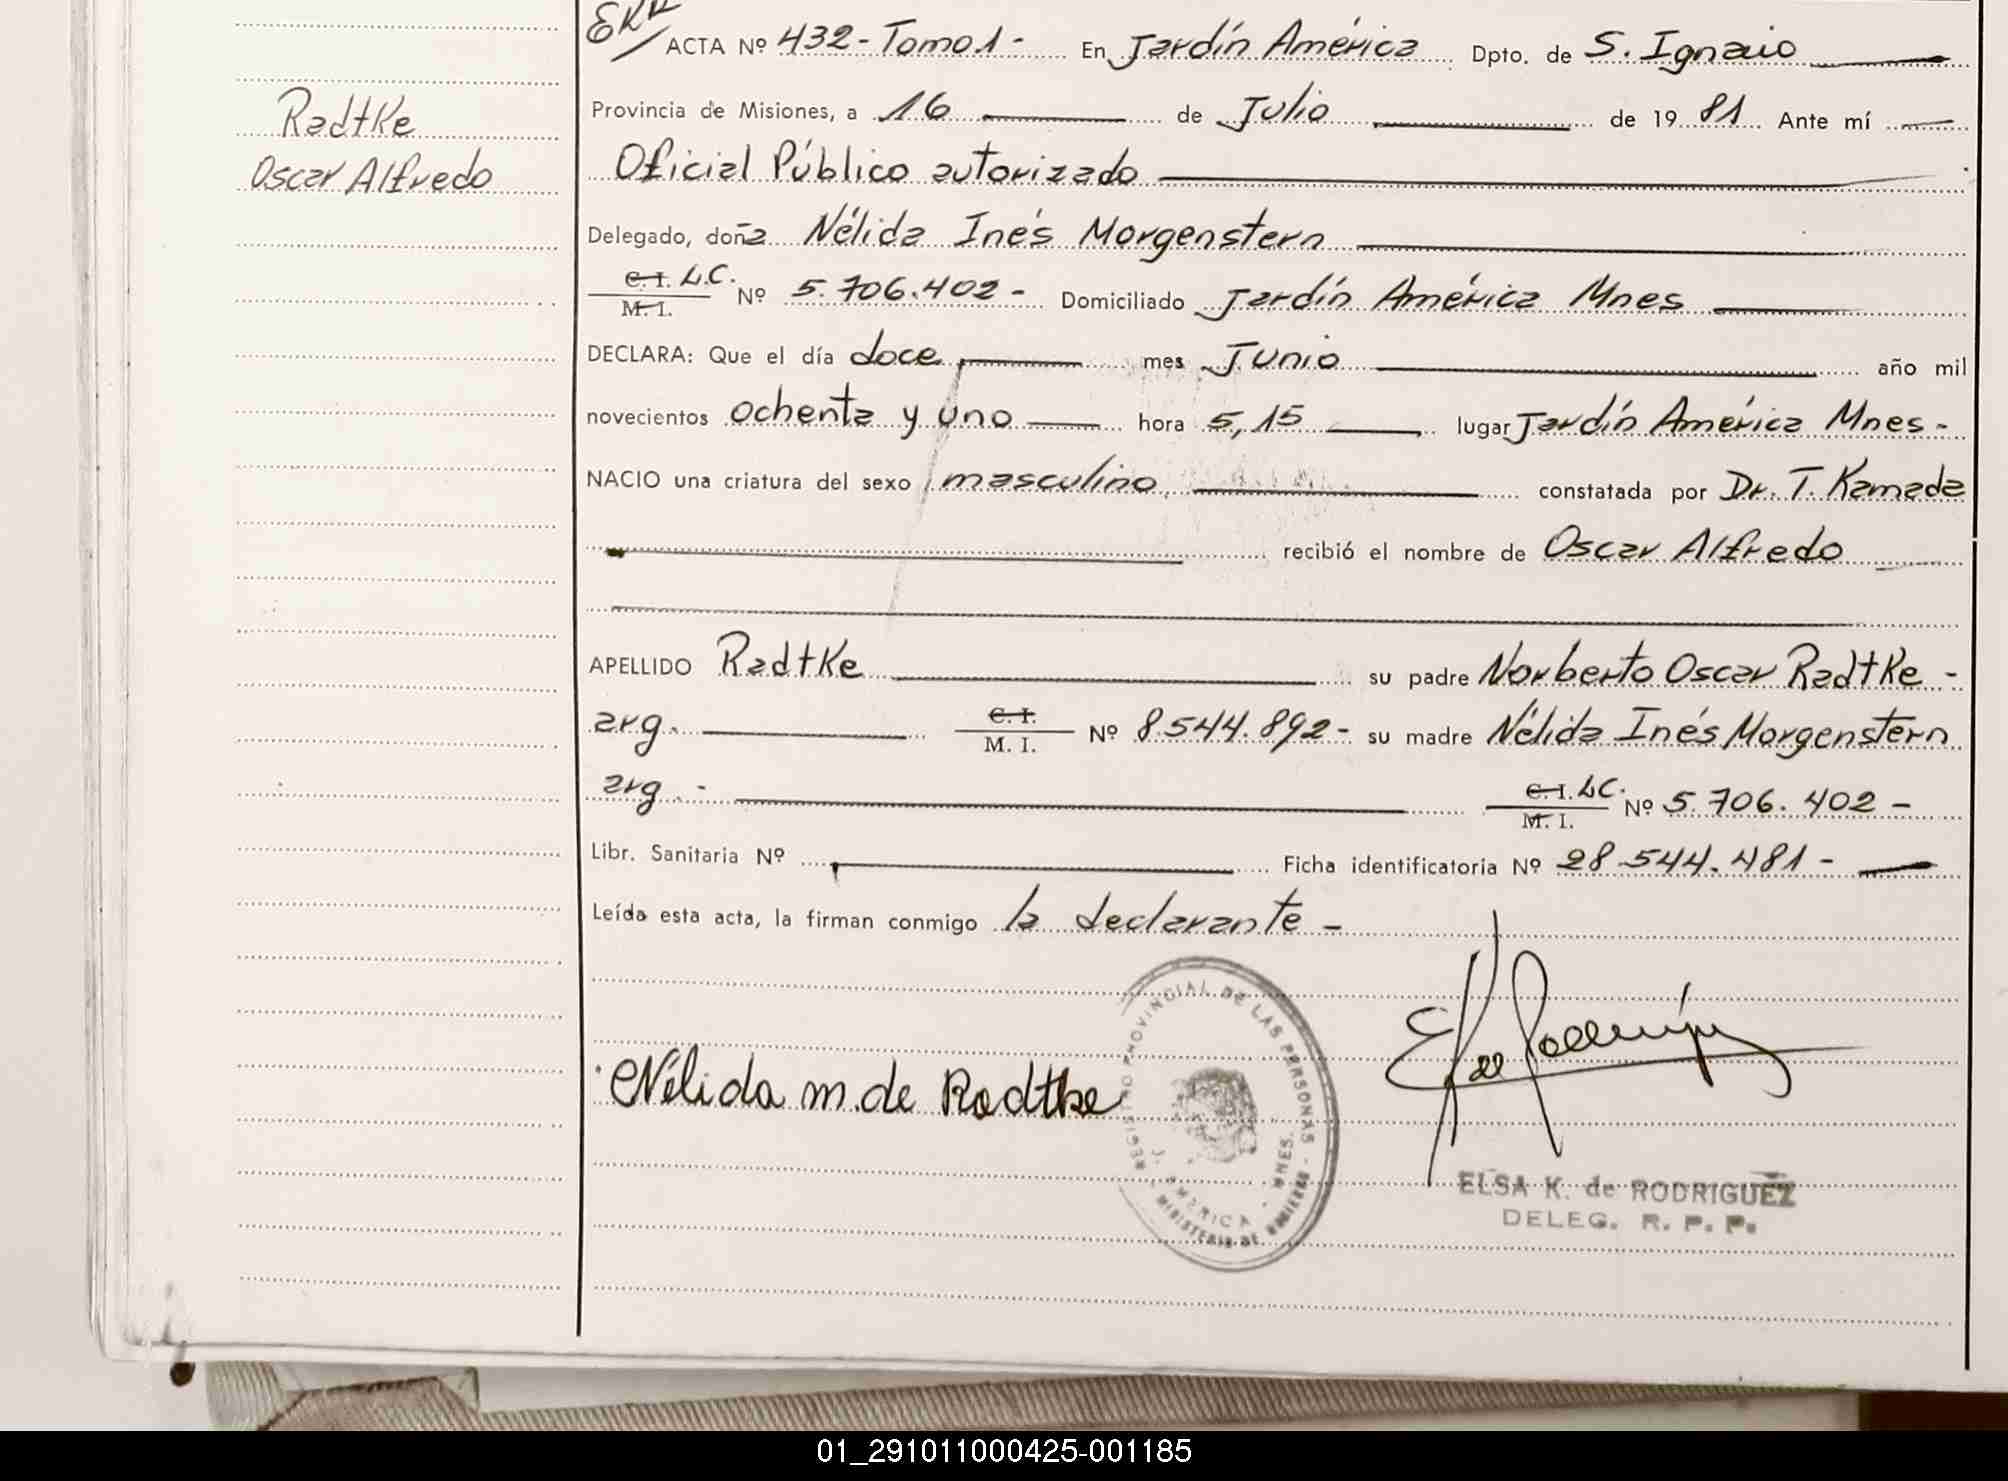 ACTA Nº 432 - Tomo 1 - En Jardín América Dpto. de S. Ignacio
Radtke
Oscar Alfredo
Provincia de Misiones, a 16 de Julio de 1981 Ante mí
Oficial Público autorizado
Delegado, doña Nélida Inés Morgenstern
C.I. L.C.
M. I. Nº 5.706.402 - Domiciliado Jardín América Mnes
DECLARA: Que el día doce mes Junio año mil
novecientos ochenta y uno hora 5,15 lugar Jardín América Mnes -
NACIO una criatura del sexo masculino constatada por Dr. T. Kamada
recibió el nombre de Oscar Alfredo
APELLIDO Radtke su padre Norberto Oscar Radtke -
arg. C.I. M. I. Nº 8.544.892 - su madre Nélida Inés Morgenstern
arg. - C.I. LC. M. I. Nº 5.706.402 -
Libr. Sanitaria Nº Ficha identificatoria Nº 28.544.481 -
Leída esta acta, la firman conmigo la declarante -
Nélida M. de Radtke
REGISTRO PROVINCIAL DE LAS PERSONAS - MINISTERIO DE GOBIERNO
J. AMERICA - MNES.
EK de Rodriguez
ELSA K. de RODRIGUEZ
DELEG. R. P. P.
01_291011000425-001185